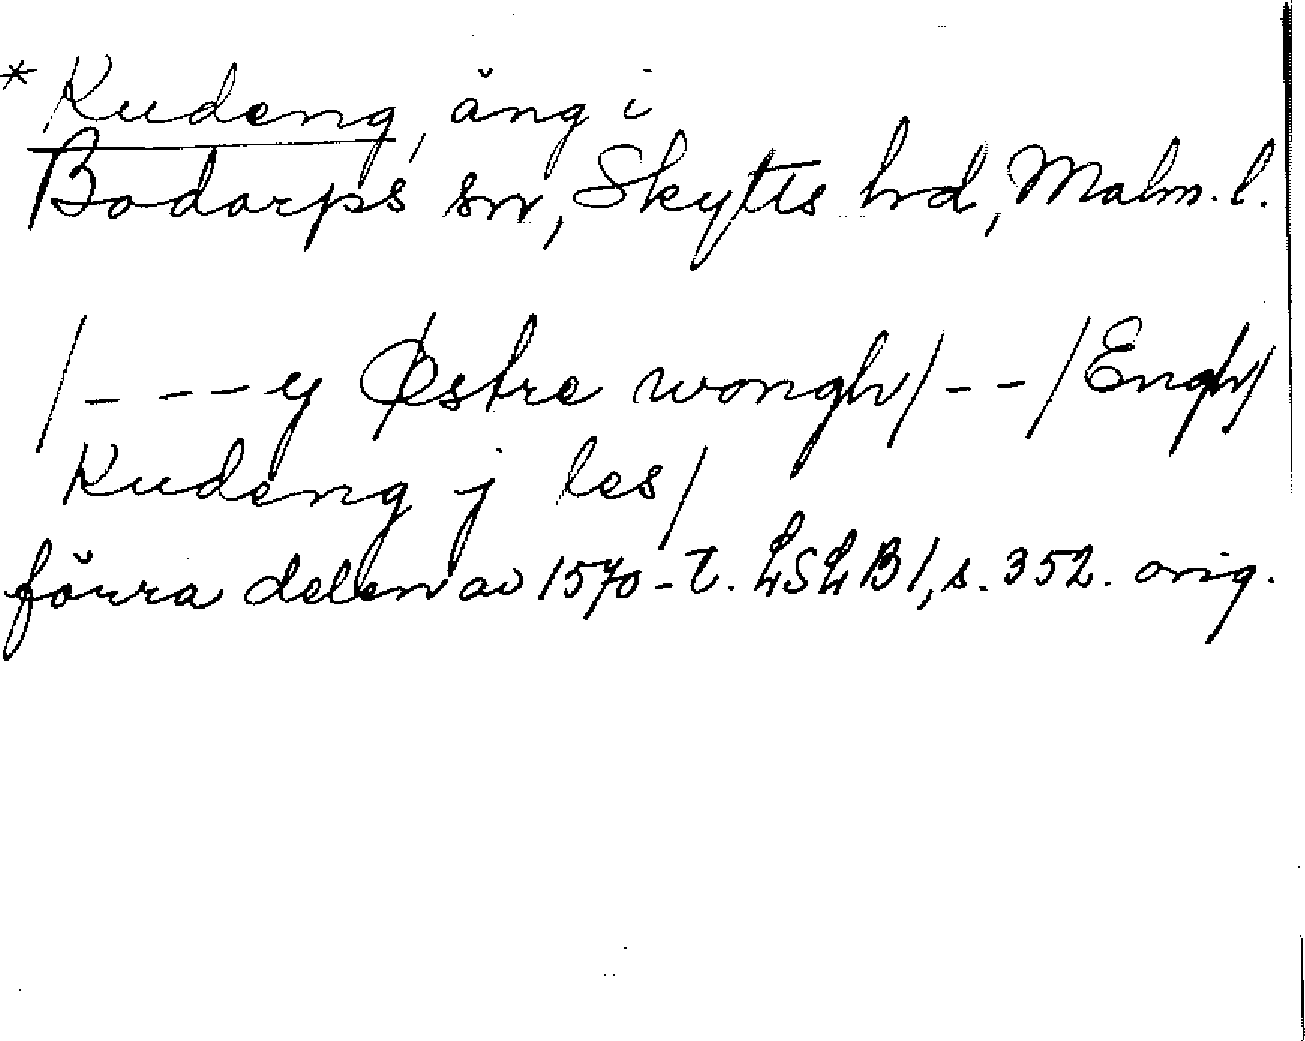 * Kudeng, äng i
Bodarps sn, Skytts hd, Malm. l.
/- - - y Østre wongh/ - - /Engh/
Kudeng j les/
förra delen av 1570-t. LSLB1, s. 352. orig.